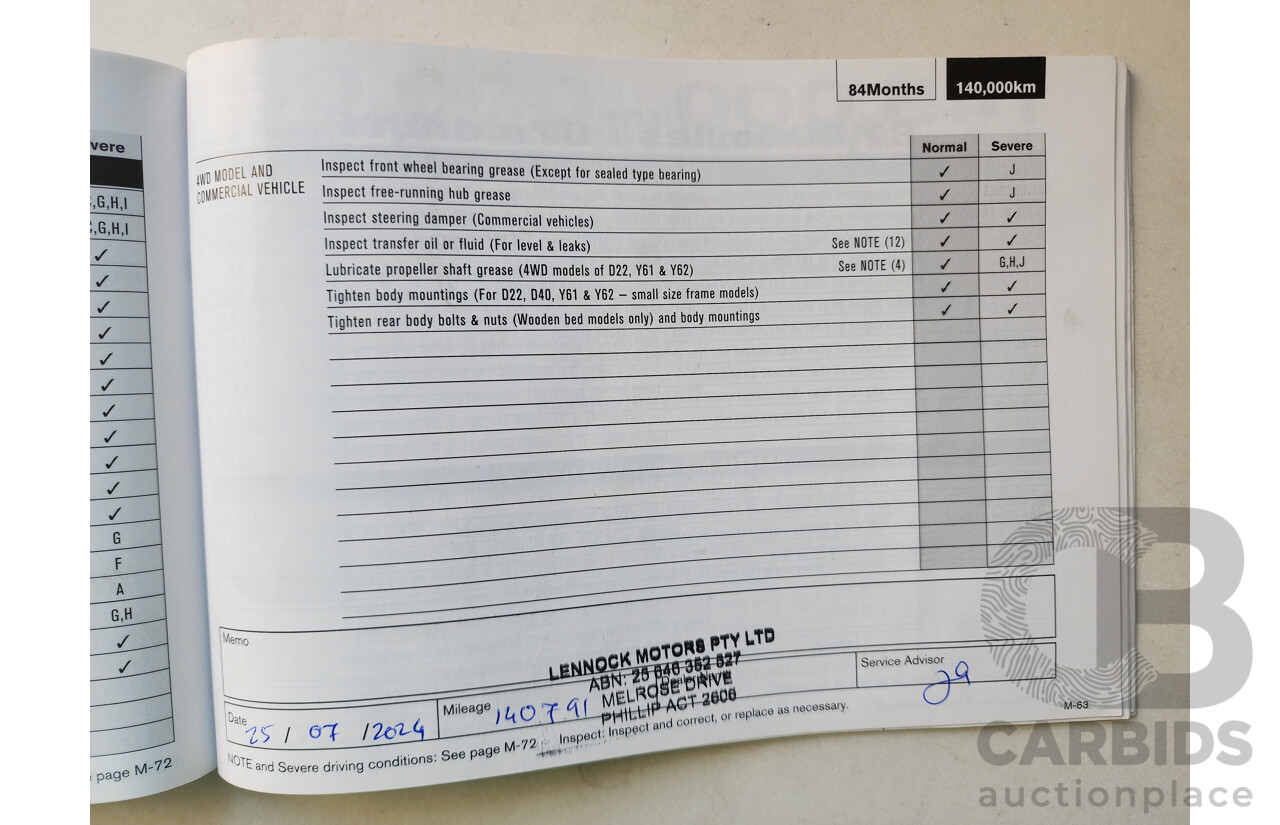 vere
,G,H,I
,G,H,I
✓
✓
✓
✓
✓
✓
✓
✓
✓
✓
✓
G
F
A
G,H
✓
✓
page M-72
84Months 140,000km
Normal Severe
4WD MODEL AND
COMMERCIAL VEHICLE
Inspect front wheel bearing grease (Except for sealed type bearing) ✓ J
Inspect free-running hub grease ✓ J
Inspect steering damper (Commercial vehicles) ✓ ✓
Inspect transfer oil or fluid (For level & leaks) See NOTE (12) ✓ ✓
Lubricate propeller shaft grease (4WD models of D22, Y61 & Y62) See NOTE (4) ✓ G,H,J
Tighten body mountings (For D22, D40, Y61 & Y62 – small size frame models) ✓ ✓
Tighten rear body bolts & nuts (Wooden bed models only) and body mountings ✓ ✓
Memo
LENNOCK MOTORS PTY LTD
ABN: 25 646 352 527
MELROSE DRIVE
PHILLIP ACT 2606
Date 25 / 07 / 2024
Mileage 140791
Service Advisor
NOTE and Severe driving conditions: See page M-72 Inspect: Inspect and correct, or replace as necessary.
M-63
CARBIDS
auctionplace